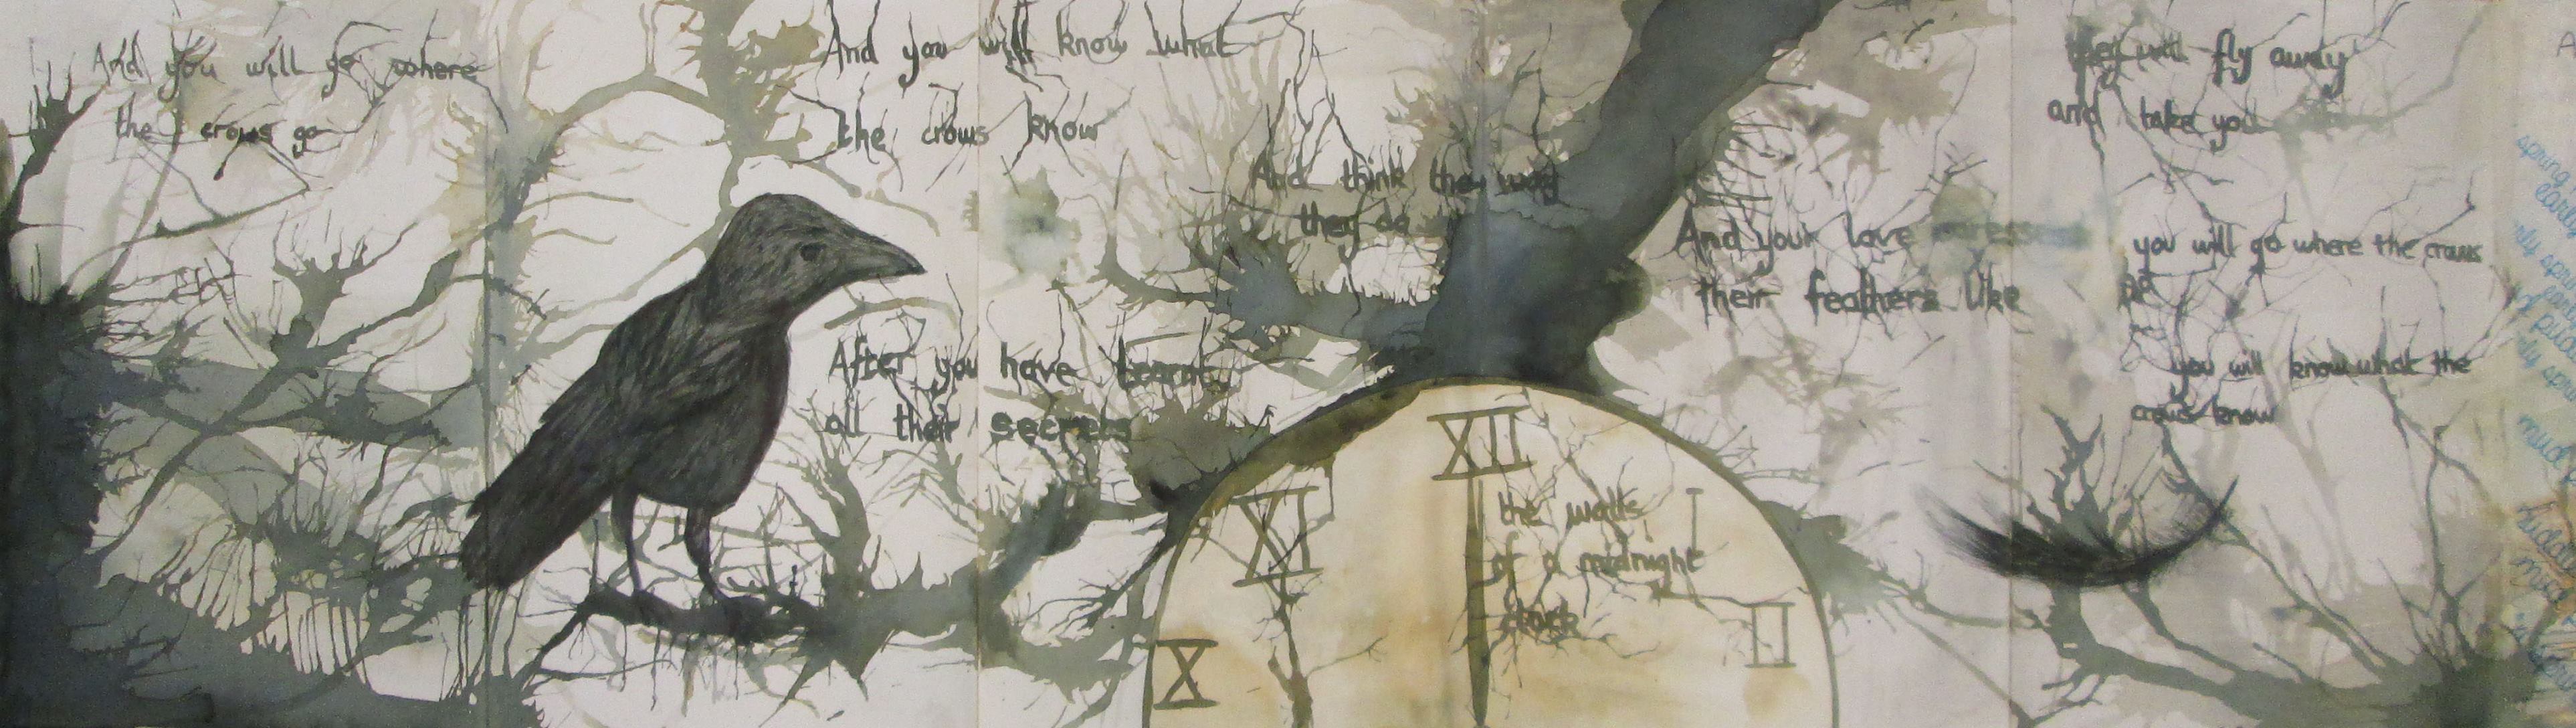 And you will go where
the crows go
And you will know what
the crows know
And think the way
they do
After you have learnt
all their secrets
And your love caresses
their feathers like
XII
XI
X
I
II
the walls
of a midnight
clock
they will fly away
and take you
you will go where the crows
go
you will know what the
crows know
spring
mud